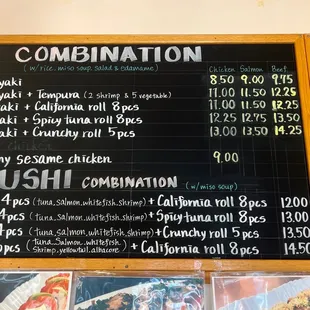 COMBINATION
(w/rice, miso soup, salad & edamame) Chicken Salmon Beef
yaki 8.50 9.00 9.75
yaki + Tempura (2 shrimp & 5 vegetable) 11.00 11.50 12.25
yaki + California roll 8pcs 11.00 11.50 12.25
yaki + Spicy tuna roll 8pcs 12.25 12.75 13.50
yaki + Crunchy roll 5pcs 13.00 13.50 14.25
ny sesame chicken 9.00
USHI COMBINATION (w/miso soup)
4pcs (tuna, salmon, whitefish, shrimp) + California roll 8pcs 12.00
4pcs (tuna, salmon, whitefish, shrimp) + Spicy tuna roll 8pcs 13.00
4pcs (tuna, salmon, whitefish, shrimp) + Crunchy roll 5pcs 13.50
pcs (tuna, salmon, whitefish, shrimp, yellowtail, albacore) + California roll 8pcs 14.50